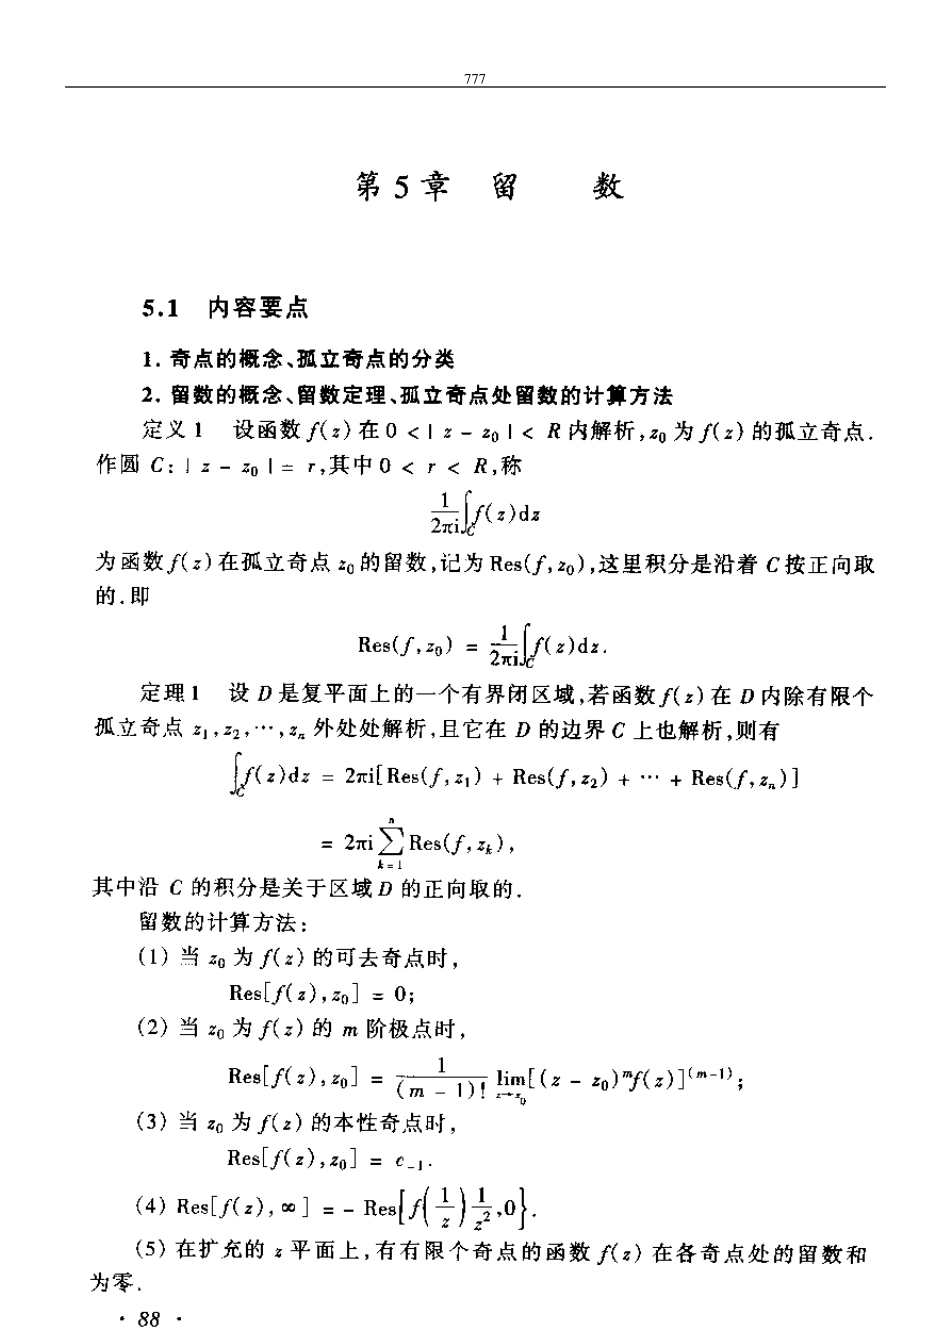 777
第 5 章 留 数
5.1 内容要点
1. 奇点的概念、孤立奇点的分类
2. 留数的概念、留数定理、孤立奇点处留数的计算方法
定义 1 设函数 f(z) 在 0 < | z - z₀ | < R 内解析, z₀ 为 f(z) 的孤立奇点.
作圆 C: | z - z₀ | = r, 其中 0 < r < R, 称
1/(2πi) ∫_C f(z)dz
为函数 f(z) 在孤立奇点 z₀ 的留数, 记为 Res(f, z₀), 这里积分是沿着 C 按正向取
的. 即
Res(f, z₀) = 1/(2πi) ∫_C f(z)dz.
定理 1 设 D 是复平面上的一个有界闭区域, 若函数 f(z) 在 D 内除有限个
孤立奇点 z₁, z₂, ⋯, zₙ 外处处解析, 且它在 D 的边界 C 上也解析, 则有
∫_C f(z)dz = 2πi[Res(f, z₁) + Res(f, z₂) + ⋯ + Res(f, zₙ)]
= 2πi ∑_{k=1}^{n} Res(f, z_k),
其中沿 C 的积分是关于区域 D 的正向取的.
留数的计算方法:
(1) 当 z₀ 为 f(z) 的可去奇点时,
Res[f(z), z₀] = 0;
(2) 当 z₀ 为 f(z) 的 m 阶极点时,
Res[f(z), z₀] = 1/(m - 1)! lim_{z→z₀} [(z - z₀)^m f(z)]^(m-1);
(3) 当 z₀ 为 f(z) 的本性奇点时,
Res[f(z), z₀] = c₋₁.
(4) Res[f(z), ∞] = - Res[f(1/z) 1/z², 0}.
(5) 在扩充的 z 平面上, 有有限个奇点的函数 f(z) 在各奇点处的留数和
为零.
· 88 ·